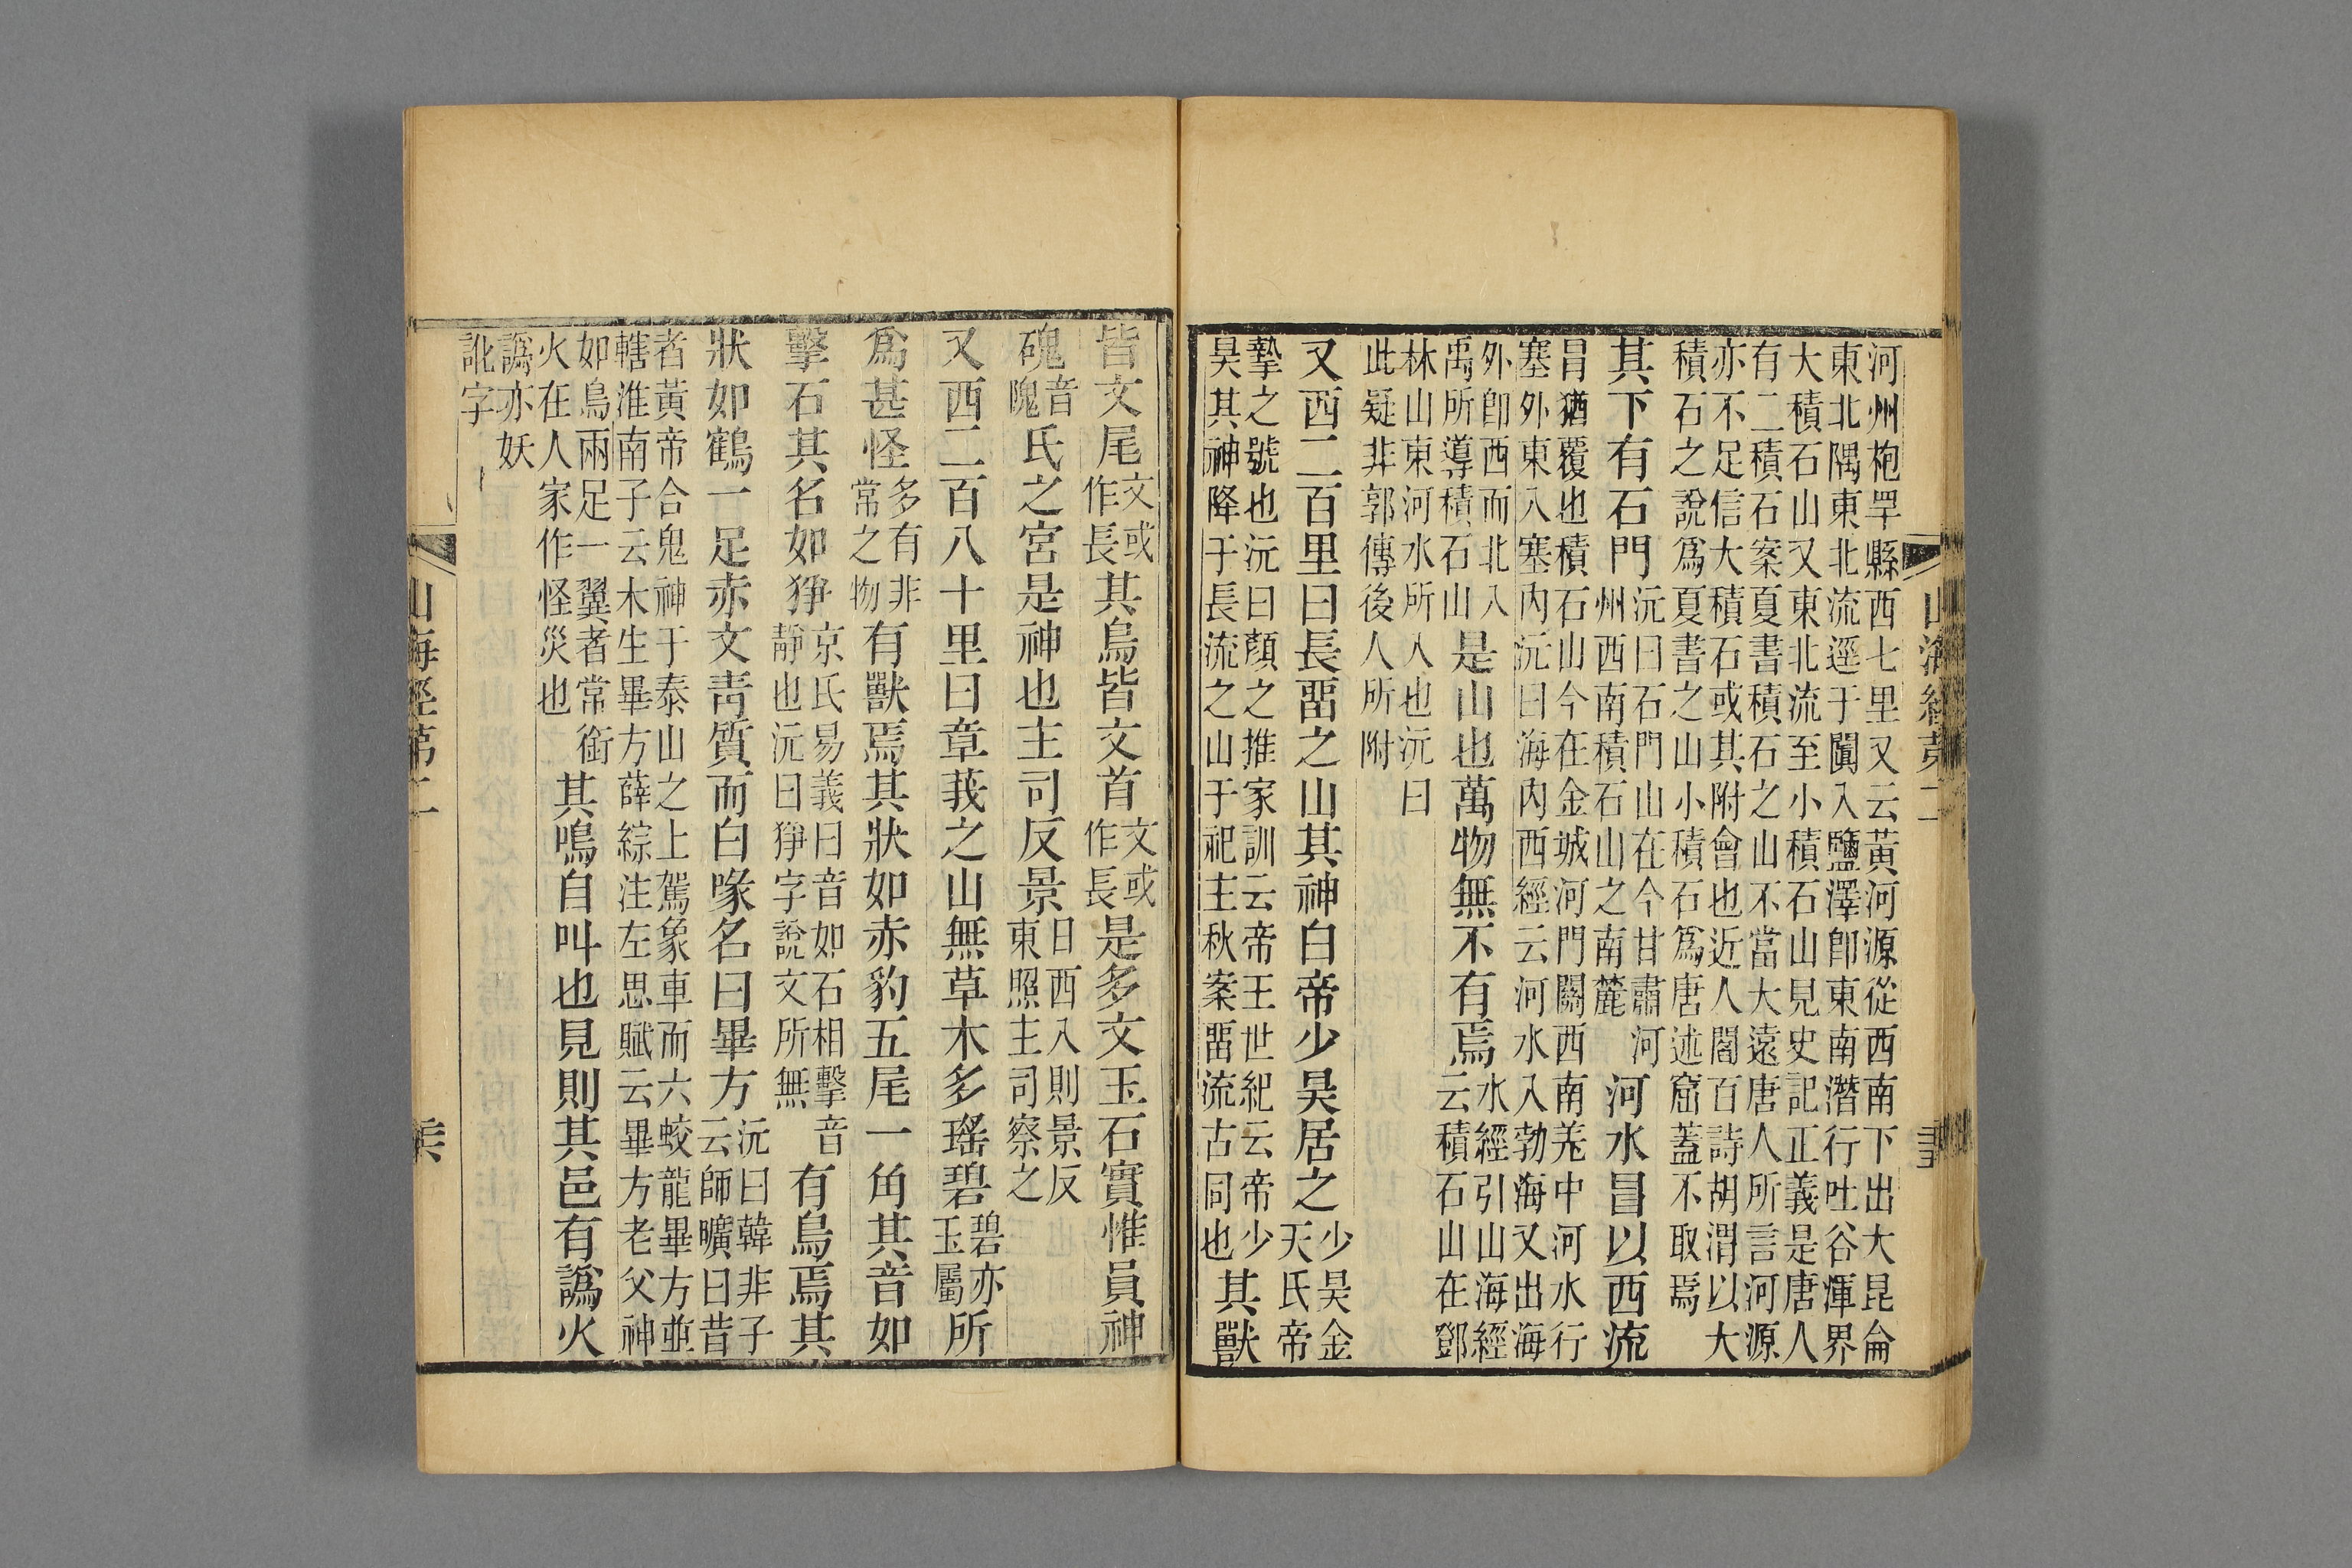 山海經第二
河州枹罕縣西七里又云黃河源從西南下出大昆侖
東北隅東北流逕于闐入鹽澤卽東南潛行吐谷渾界
大積石山又東北流至小積石山見史記正義是唐人
有二積石案夏書積石之山不當大遠唐人所言河源
亦不足信大積石或其附會也近人閻百詩胡渭以大
積石之說爲夏書之山小積石爲唐述窟蓋不取焉
其下有石門沅曰石門山在今甘肅河州西南積石山之南麓河水冒以西流
冒猶覆也積石山今在金城河門關西南羌中河水行
塞外東入塞內沅曰海內西經云河水入勃海又出海
外卽西而北入禹所導積石山是山也萬物無不有焉水經引山海經云積石山在鄧
林山東河水所入也沅曰
此疑非郭傳後人所附
又西二百里曰長畱之山其神白帝少昊居之少昊金天氏帝
摯之號也沅曰顏之推家訓云帝王世紀云帝少昊其神降于長流之山于祀主秋案畱流古同也其獸
皆文尾文或作長其鳥皆文首文或作長是多文玉石實惟員神
磈音隗氏之宮是神也主司反景日西入則景反東照主司察之
又西二百八十里曰章莪之山無草木多瑤碧碧亦玉屬所
爲甚怪多有非常之物有獸焉其狀如赤豹五尾一角其音如
擊石其名如猙京氏易義曰音如石相擊音靜也沅曰猙字說文所無有鳥焉其
狀如鶴一足赤文靑質而白喙名曰畢方沅曰韓非子云師曠曰昔
者黃帝合鬼神于泰山之上駕象車而六蛟龍畢方並
轄淮南子云木生畢方薛綜注左思賦云畢方老父神
如鳥兩足一翼者常銜火在人家作怪災也其鳴自叫也見則其邑有譌火
譌亦妖
訛字
山海經第二